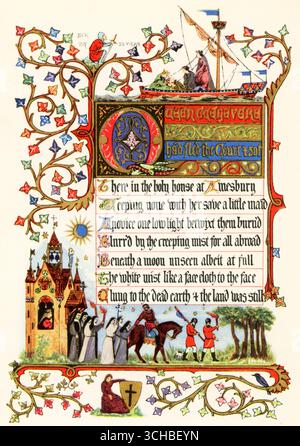 Queen Guinevere
had fled the Court & sat
There in the holy house at Amesbury
Weeping none with her save a little maid
A novice one low light betwixt them burned
Blurred by the creeping mist for all abroad
Beneath a moon unseen albeit at full
The white mist like a face cloth to the face
Clung to the dead earth & the land was still
alamy
Image ID: 3CHBEYN
www.alamy.com